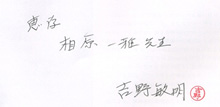 惠存
相原 一雅 先生
吉野敏明